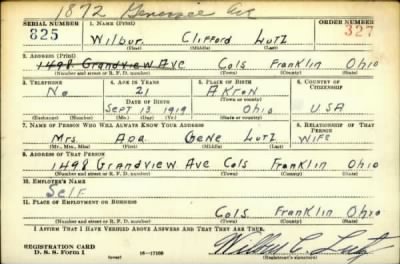 1872 Genessee Ave
SERIAL NUMBER 1. NAME (Print) ORDER NUMBER
825 Wilbur Clifford Lutz 327
(First) (Middle) (Last)
2. ADDRESS (Print)
1498 Grandview Ave Cols Franklin Ohio
(Number and street or R. F. D. number) (Town) (County) (State)
3. TELEPHONE 4. AGE IN YEARS 5. PLACE OF BIRTH 6. COUNTRY OF CITIZENSHIP
No 21 Akron
DATE OF BIRTH (Town or county)
Sept 13 1919 Ohio USA
(Mo.) (Day) (Yr.) (State or country)
7. NAME OF PERSON WHO WILL ALWAYS KNOW YOUR ADDRESS 8. RELATIONSHIP OF THAT PERSON
Mrs Ada Gene Lutz Wife
(Mr., Mrs., Miss) (First) (Middle) (Last)
9. ADDRESS OF THAT PERSON
1498 Grandview Ave Cols Franklin Ohio
(Number and street or R. F. D. number) (Town) (County) (State)
10. EMPLOYER'S NAME
Self
11. PLACE OF EMPLOYMENT OR BUSINESS
Cols. Franklin Ohio
(Number and street or R. F. D. number) (Town) (County) (State)
I AFFIRM THAT I HAVE VERIFIED ABOVE ANSWERS AND THAT THEY ARE TRUE.
REGISTRATION CARD
D. S. S. Form 1 (over) Wilbur C. Lutz
(Registrant's signature)